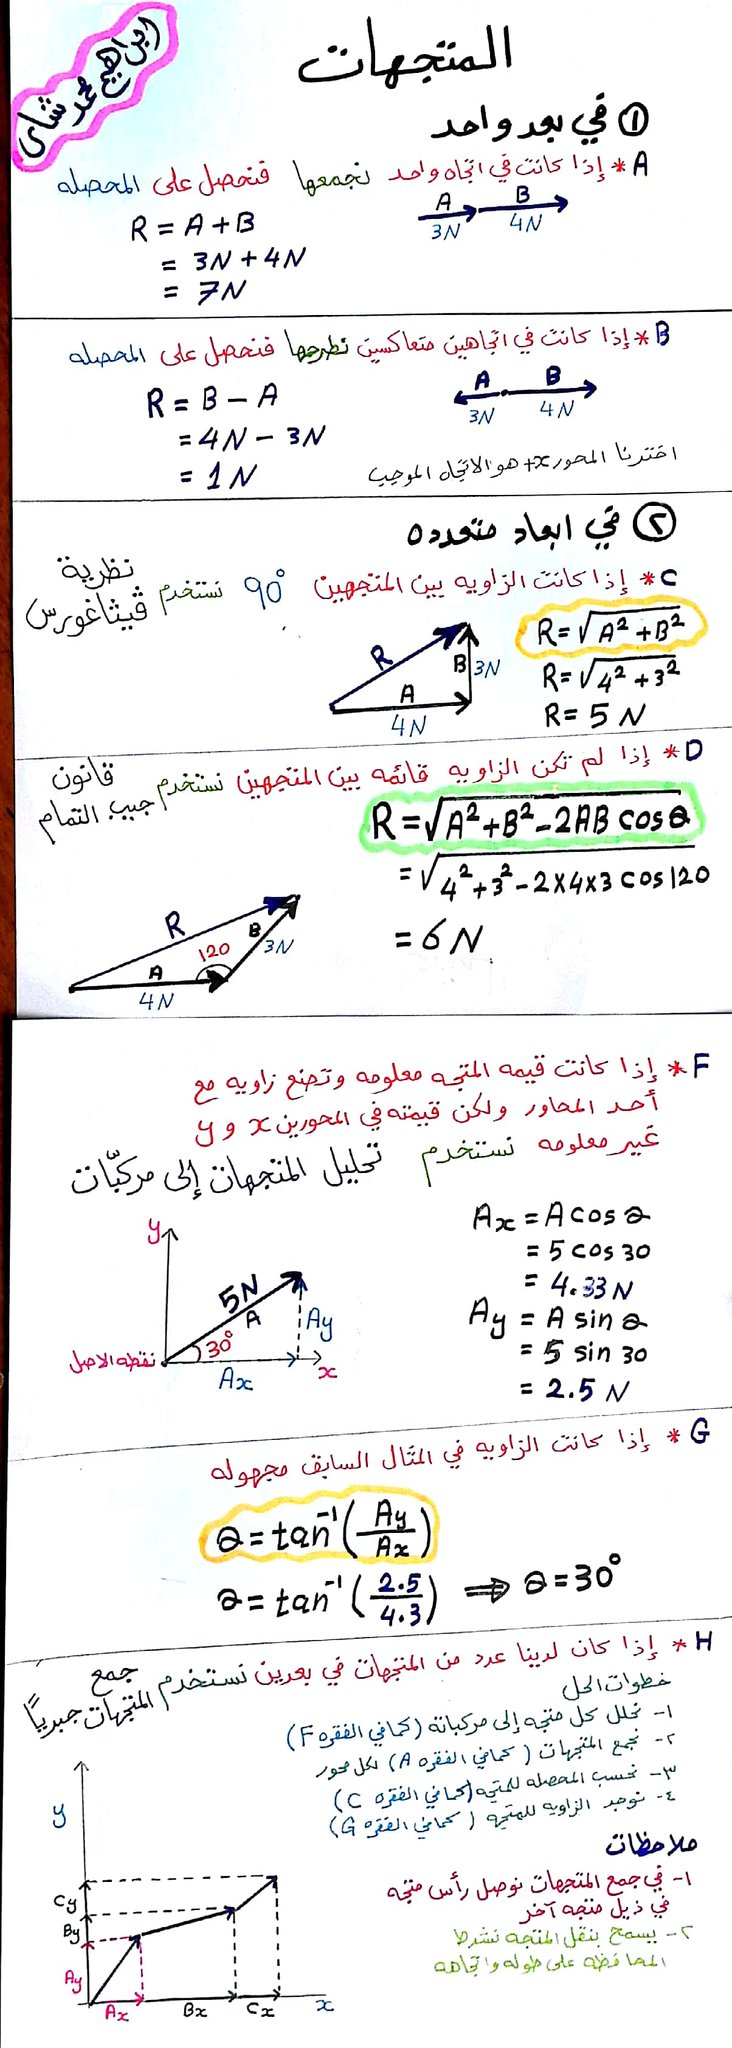 المتجهات
ابراهيم محمد شاي
① في بعد واحد
A * إذا كانت في اتجاه واحد نجمعها فنحصل على المحصله
A B
3N 4N
R = A + B
= 3N + 4N
= 7N
B * إذا كانت في اتجاهين متعاكسين نطرحها فنحصل على المحصله
A B
3N 4N
R = B - A
= 4N - 3N
= 1N
اخترنا المحور x+ هو الاتجاه الموجب
② في ابعاد متعدده
C * إذا كانت الزاويه بين المتجهين 90° نستخدم نظرية
فيثاغورس
R = √A² + B²
R = √4² + 3²
R = 5 N
R
B 3N
A
4N
D * إذا لم تكن الزاويه قائمه بين المتجهين نستخدم قانون
جيب التمام
R = √A² + B² - 2AB cos θ
= √4² + 3² - 2×4×3 cos 120
= 6 N
R
B
120 3N
A
4N
F * إذا كانت قيمه المتجه معلومه وتصنع زاويه مع
أحد المحاور ولكن قيمته في المحورين x و y
غير معلومه نستخدم تحليل المتجهات إلى مركبّات
Ax = A cos θ
= 5 cos 30
= 4.33 N
Ay = A sin θ
= 5 sin 30
= 2.5 N
y
5N
A Ay
30°
نقطه الاصل
Ax x
G * إذا كانت الزاويه في المثال السابق مجهوله
θ = tan⁻¹ (Ay/Ax)
θ = tan⁻¹ (2.5/4.3) ⟹ θ = 30°
H * إذا كان لدينا عدد من المتجهات في بعدين نستخدم جمع
المتجهات جبرياً
خطوات الحل
١- نحلل كل متجه إلى مركباته (كما في الفقره F)
٢- نجمع المتجهات (كما في الفقره A) لكل محور
٣- نحسب المحصله للمتجه (كما في الفقره C)
٤- نوجد الزاويه للمتجه (كما في الفقره G)
ملاحظات
١- في جمع المتجهات نوصل رأس متجه
في ذيل متجه آخر
٢- يسمح بنقل المتجه بشرط
المحافظه على طوله واتجاهه
y
Cy
By
Ay
Ax Bx Cx x